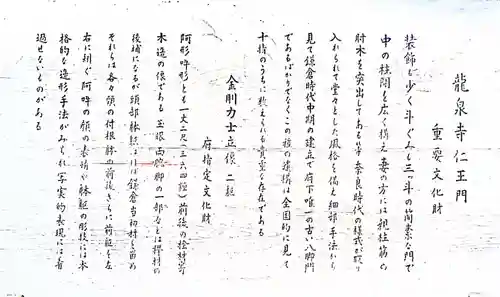 龍泉寺仁王門
重要文化財
装飾も少く斗ぐみも三ツ斗の簡素な門で
中の柱間を広く構え妻の方には親柱筋の
肘木を突出してある等奈良時代の様式が取り
入れられて堂々とした風格を備え細部手法から
見て鎌倉時代中期の建立で府下唯一の古い八脚門
であるばかりでなくこの種の遺構は全国的に見て
十指のうちに数えられる貴重な存在である
金剛力士立像 二躯
府指定文化財
阿形吽形とも一丈二尺(三、六四糎)前後の桧材寄
木造の像である 玉眼両腕脚の一部などは樫材の
後補になるが頭部躰躯はほぼ鎌倉当初材を留め
それらは各々頭の付根躰の前後さらに前躯を左
右に矧ぐ 阿吽の顔の表情や躰躯の彫技には本
格的な造形手法がみられ写実的表現には看
過せないものがある